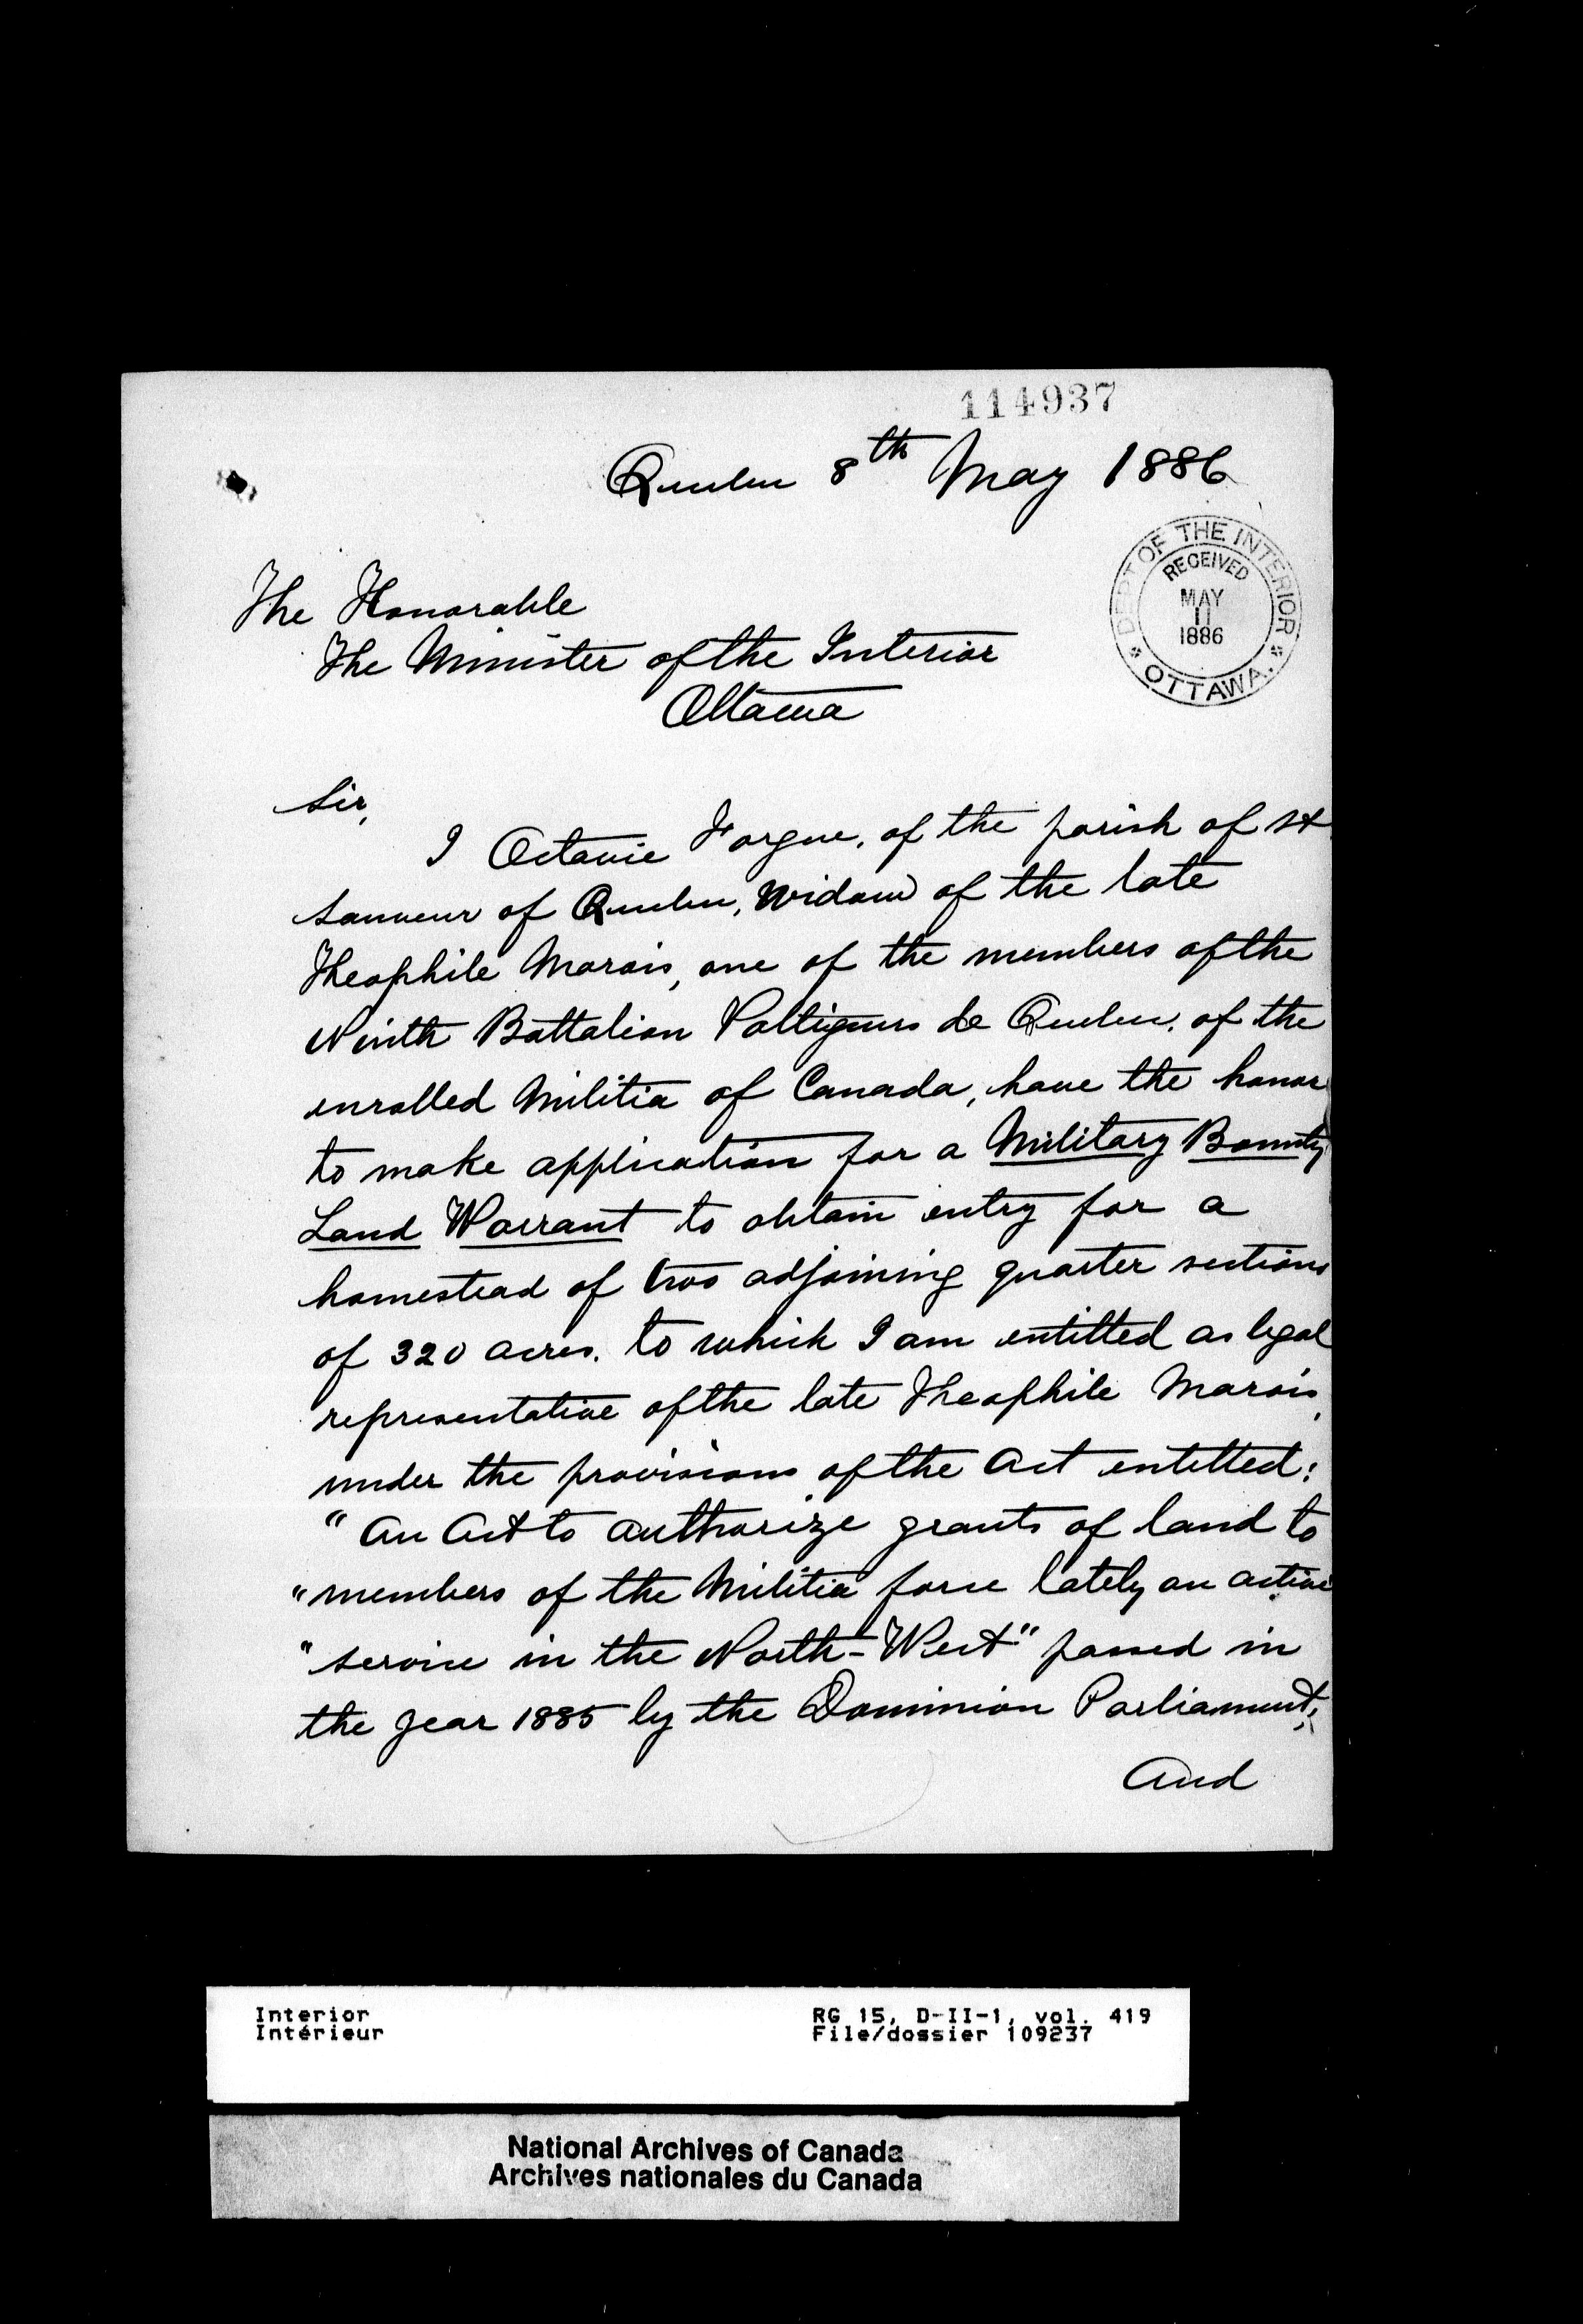 114937
Quebec 8th May 1886
DEPT OF THE INTERIOR
RECEIVED
MAY
11
1886
OTTAWA.
The Honorable
The Minister of the Interior
Ottawa
Sir,
I Octavie Forgue, of the parish of St
Sauveur of Quebec, Widow of the late
Theophile Marois, one of the members of the
Ninth Battalion Voltigeurs de Quebec, of the
enrolled Militia of Canada, have the honor
to make application for a Military Bounty
Land Warrant to obtain entry for a
homestead of two adjoining quarter sections
of 320 acres. to which I am entitled as legal
representative of the late Theophile Marois,
under the provisions of the Act entitled:
"An Act to authorize grants of land to
"members of the Militia force lately on active
"service in the North-West" passed in
the year 1885 by the Dominion Parliament;
And
Interior RG 15, D-II-1, vol. 419
Intérieur File/dossier 109237
National Archives of Canada
Archives nationales du Canada